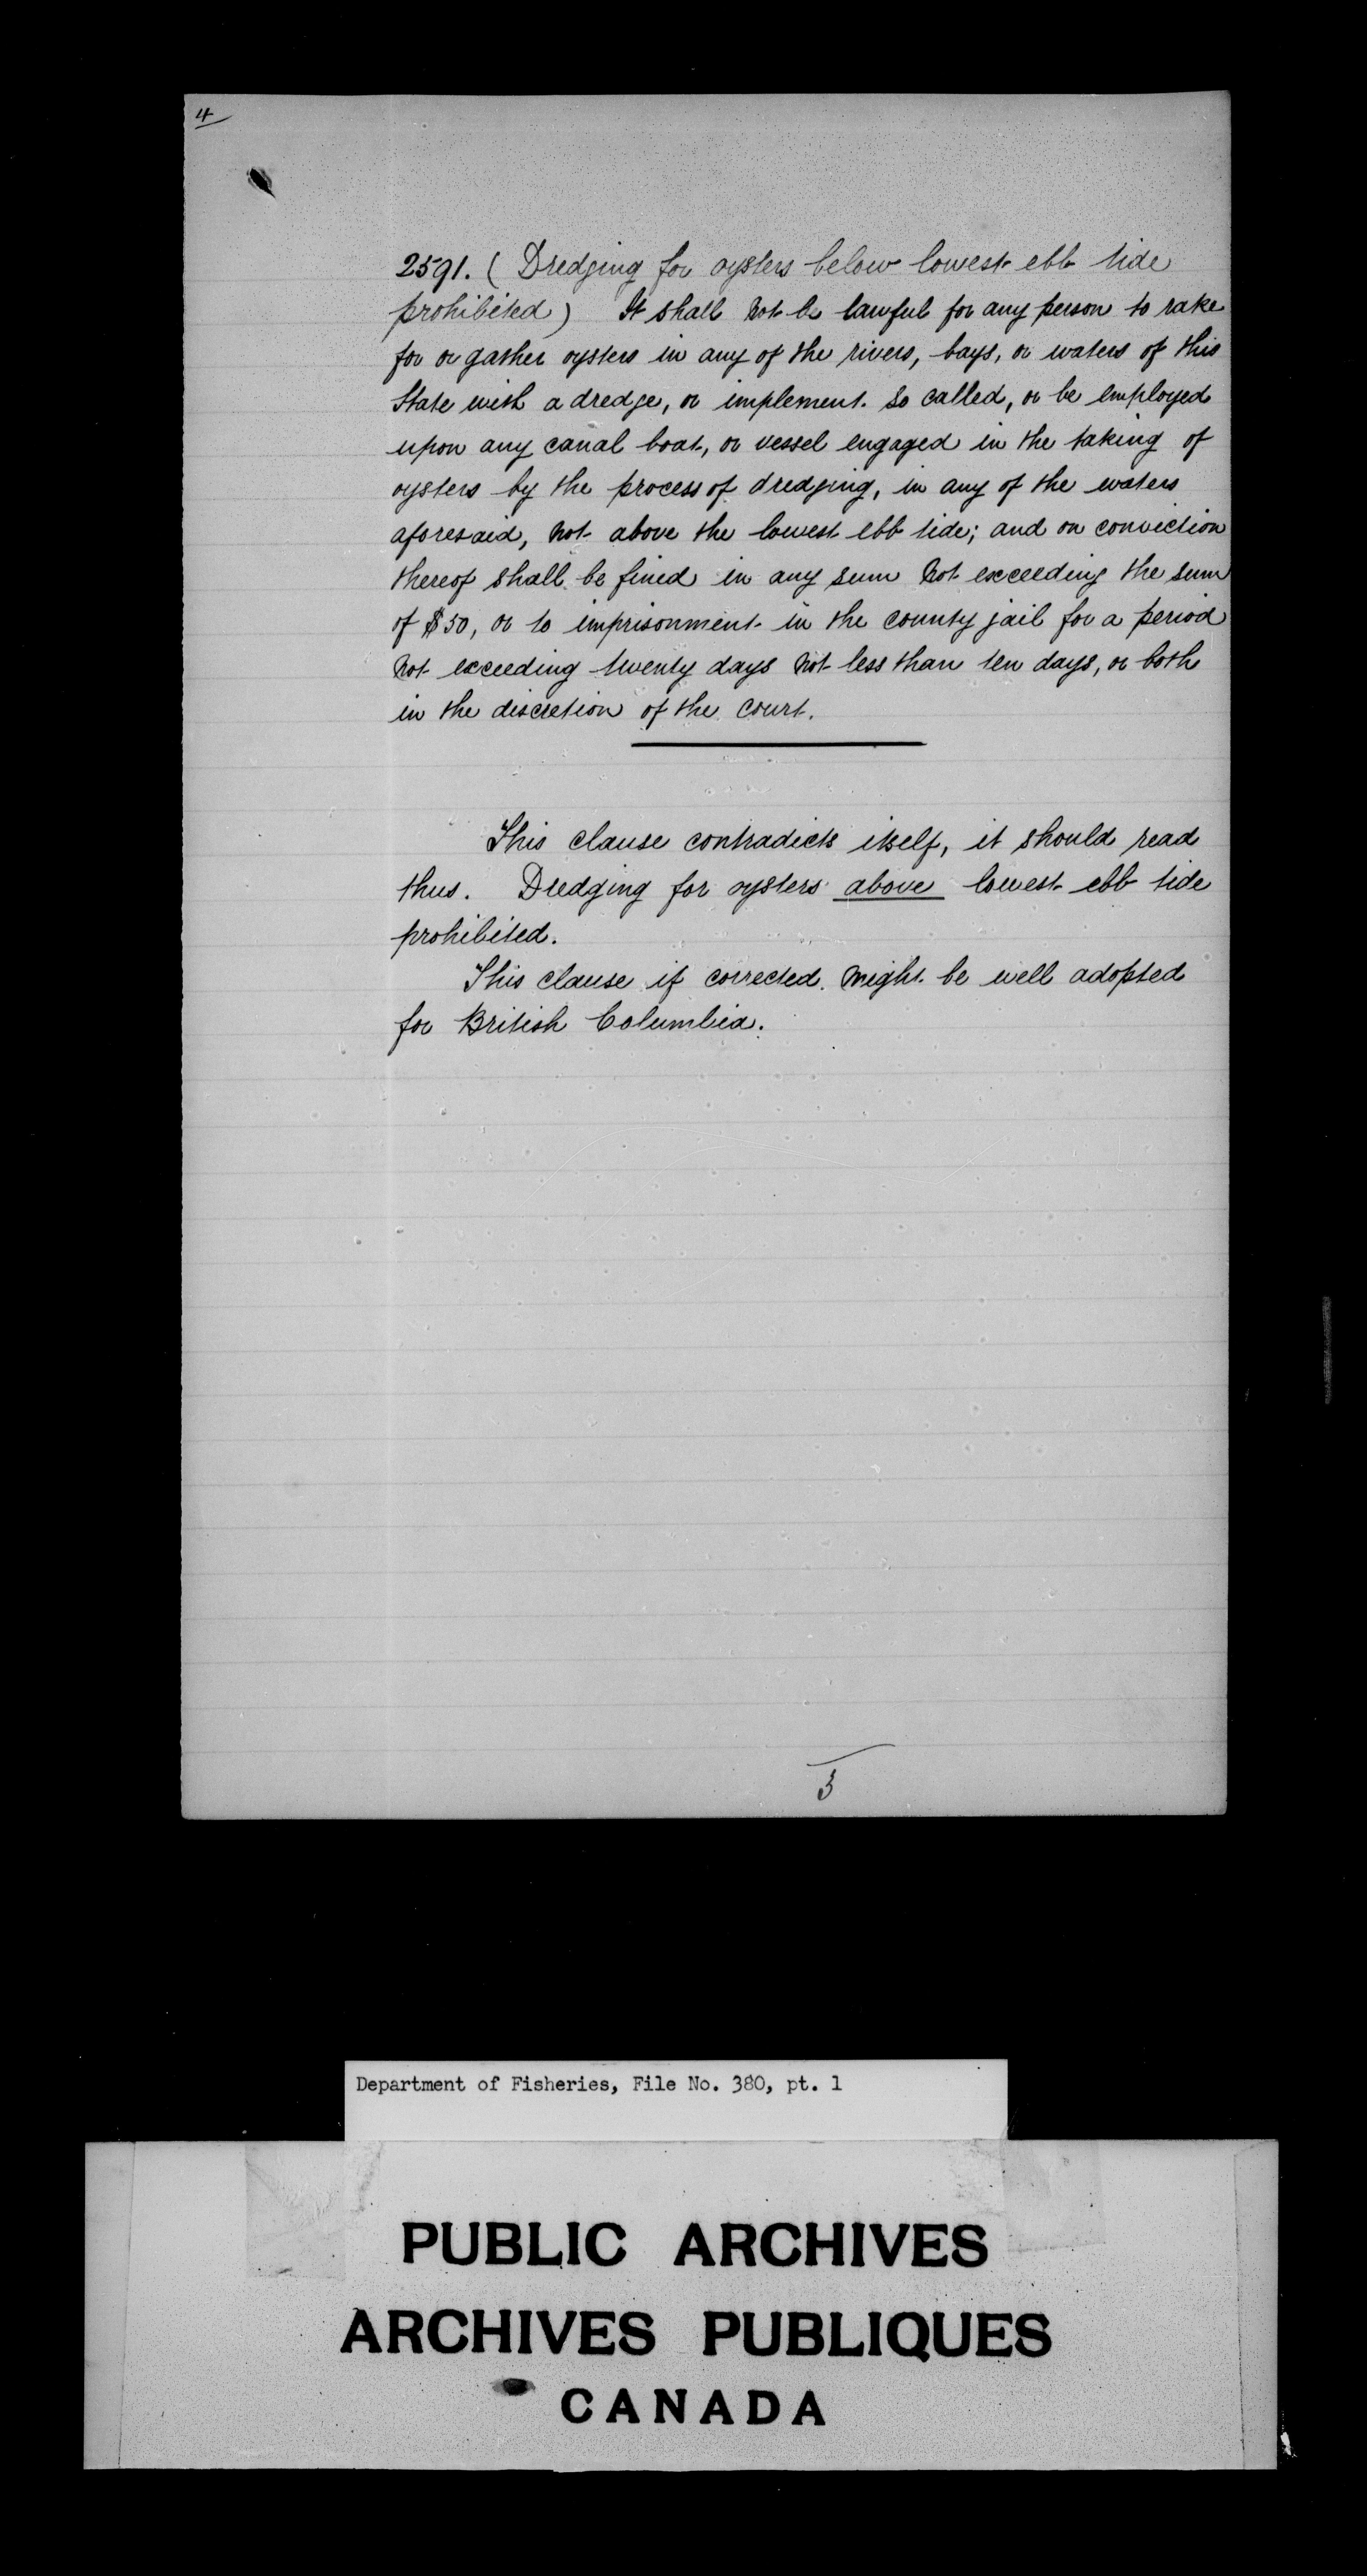 4
2591. ( Dredging for oysters below lowest ebb tide
prohibited ) It shall not be lawful for any person to rake
for or gather oysters in any of the rivers, bays, or waters of this
State with a dredge, or implement so called, or be employed
upon any canal boat, or vessel engaged in the taking of
oysters by the process of dredging, in any of the waters
aforesaid, not above the lowest ebb tide; and on conviction
thereof shall be fined in any sum not exceeding the sum
of $50, or to imprisonment in the county jail for a period
not exceeding twenty days not less than ten days, or both
in the discretion of the court.
This clause contradicts itself, it should read
thus. Dredging for oysters above lowest ebb tide
prohibited.
This clause if corrected might be well adopted
for British Columbia.
3
Department of Fisheries, File No. 380, pt. 1
PUBLIC ARCHIVES
ARCHIVES PUBLIQUES
CANADA